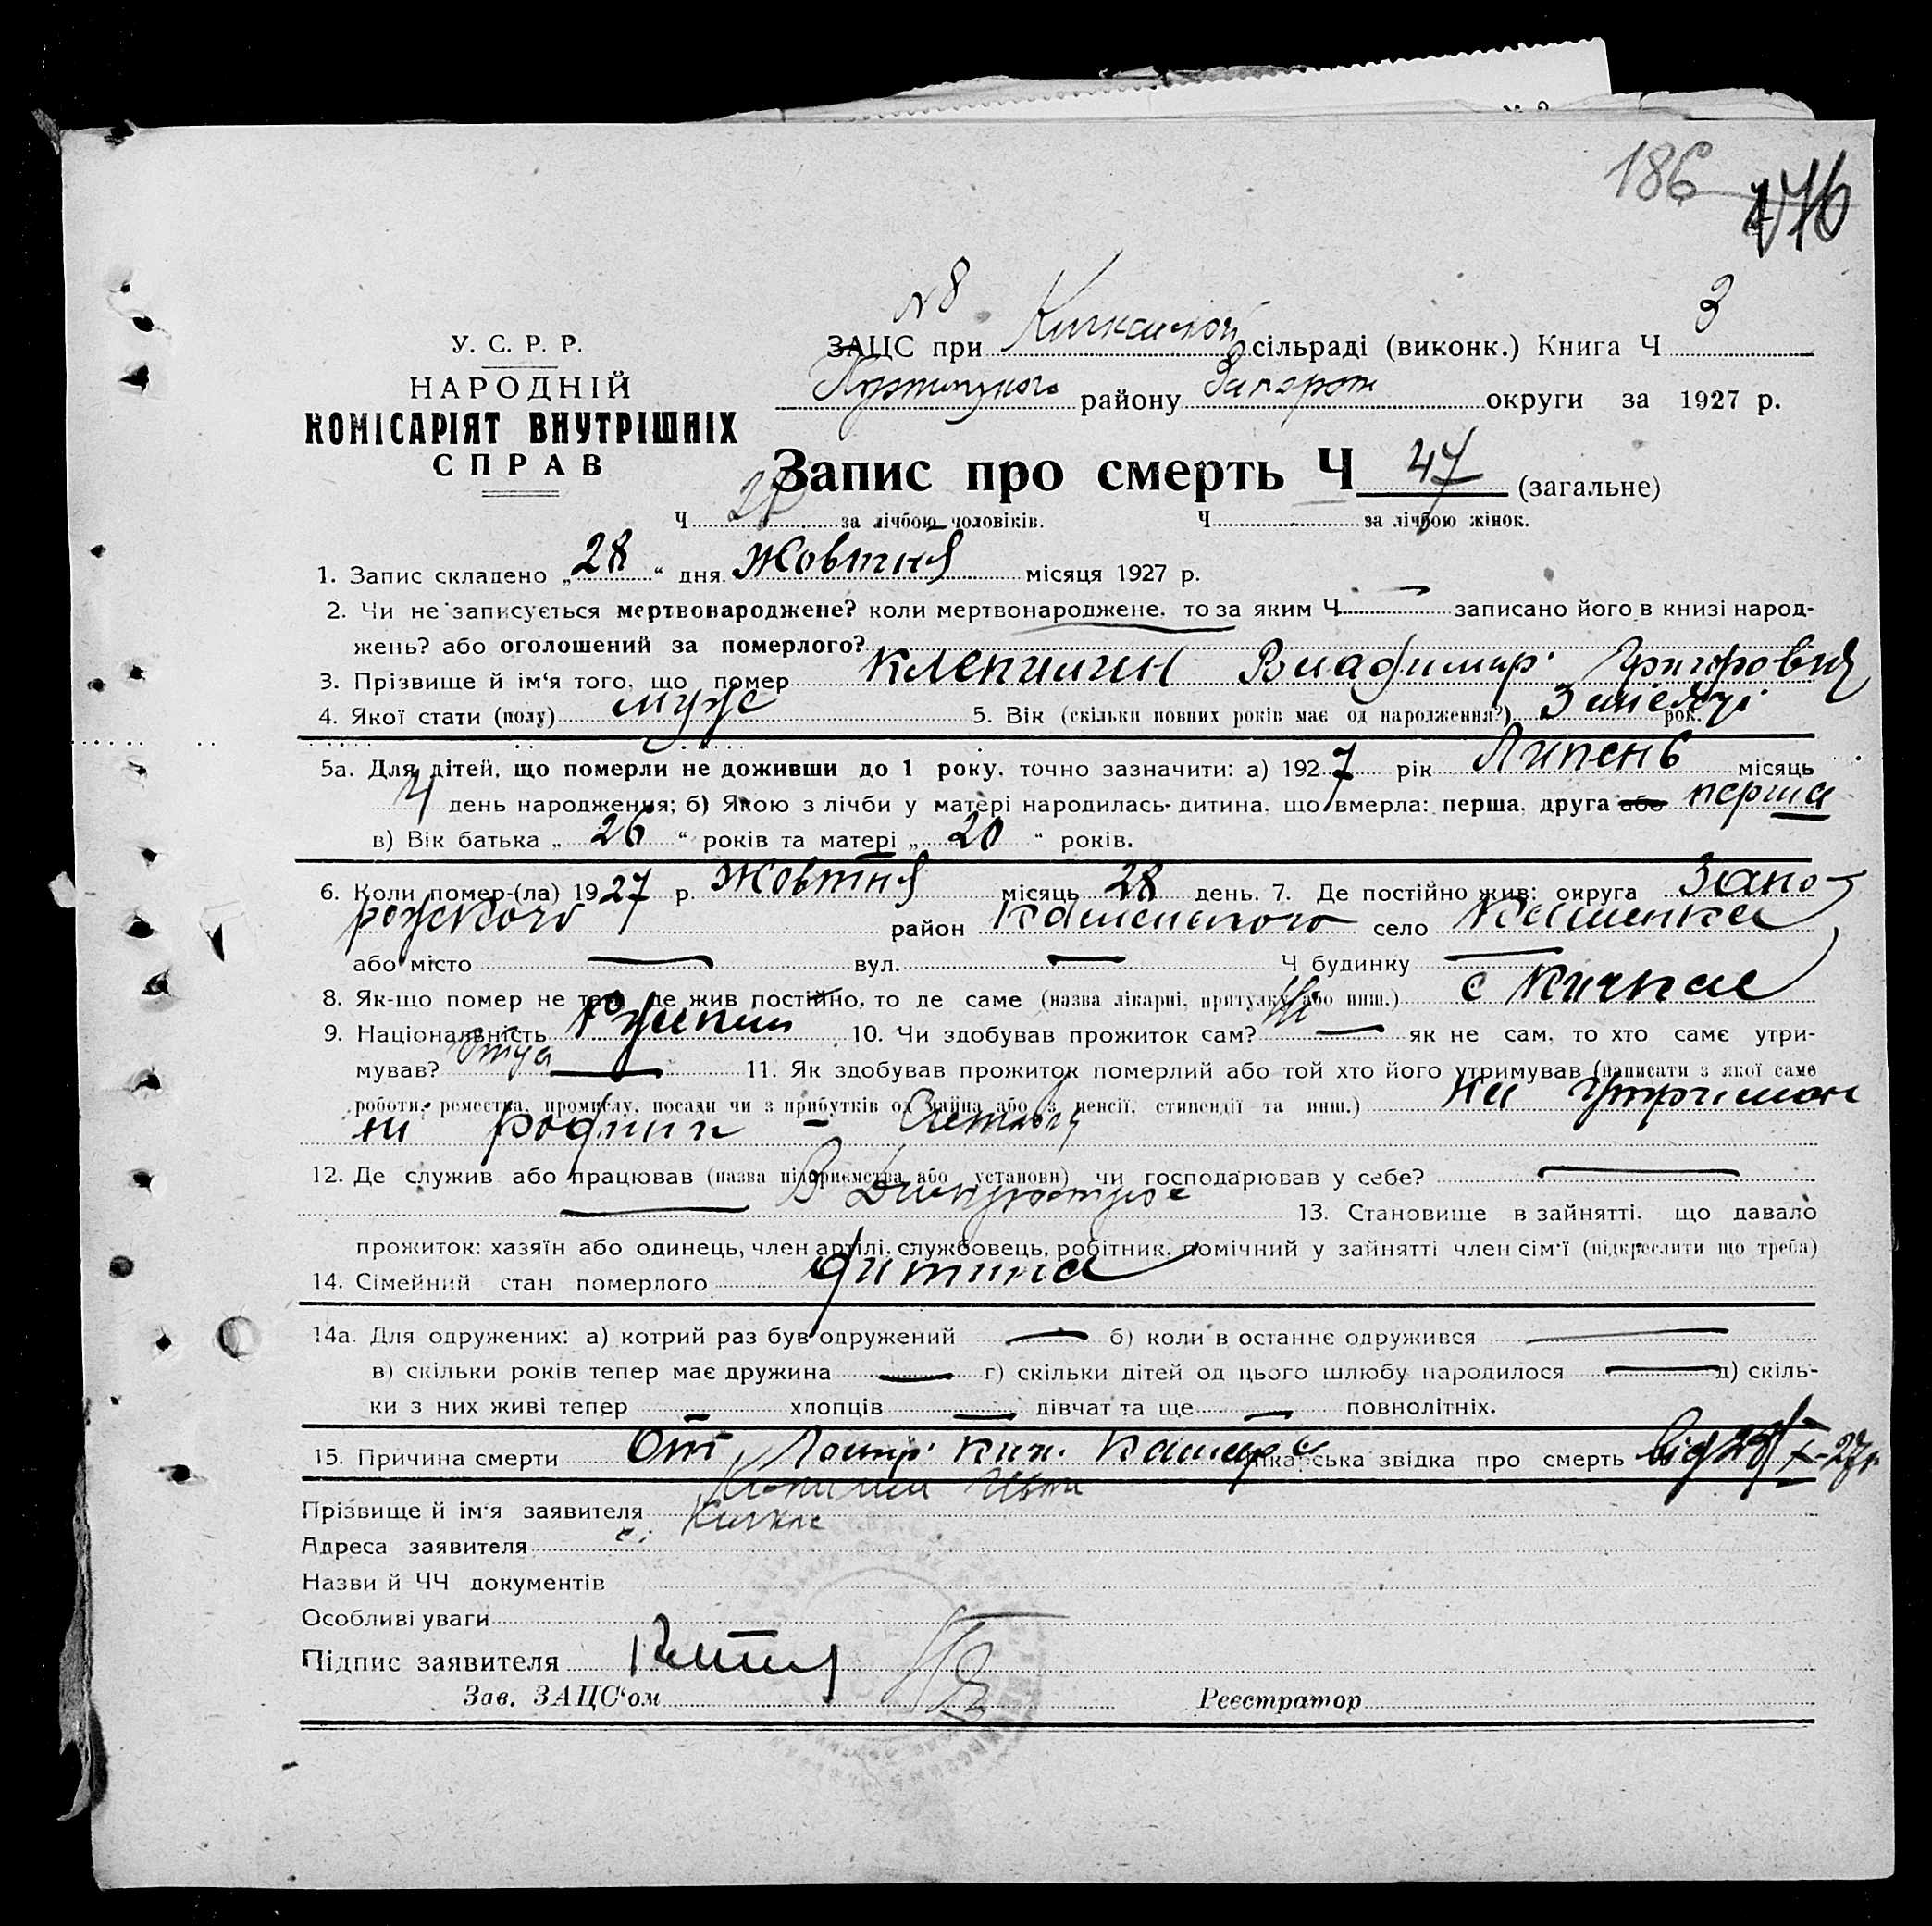 186 176
№ 8 3
У. С. Р. Р. ЗАЦС при сільраді (виконк.) Книга Ч
НАРОДНІЙ району Запорож округи за 1927 р.
КОМІСАРІЯТ ВНУТРІШНІХ
СПРАВ Запис про смерть Ч 47 (загальне)
Ч за лічбою чоловіків. Ч за лічбою жінок.
1. Запис складено „ 28 “ дня Жовтня місяця 1927 р.
2. Чи не записується мертвонароджене? коли мертвонароджене, то за яким Ч — записано його в книзі народ-
жень? або оголошений за померлого?
3. Прізвище й ім‘я того, що помер Владимир Григоровия
4. Якої стати (полу) муж 5. Вік (скільки повних років має од народження?) 3 місяці рок.
5а. Для дітей, що померли не доживши до 1 року, точно зазначити: а) 192 7 рік Липень місяць
4 день народження; б) Якою з лічби у матері народилась дитина, що вмерла: перша, друга або перша
в) Вік батька „ 26 “ років та матері „ 20 “ років.
6. Коли помер-(ла) 19 27 р. Жовтня місяць 28 день. 7. Де постійно жив: округа Запо-
рожского район Каменского село Каменка
або місто — вул. — Ч будинку —
8. Як-що помер не там, де жив постійно, то де саме (назва лікарні, притулку або инш.) с Кичкас
9. Національність 10. Чи здобував прожиток сам? Ні — як не сам, то хто саме утри-
мував? Отца — 11. Як здобував прожиток померлий або той хто його утримував (написати з якої саме
роботи, ремества, промислу, посади чи з прибутків од майна або з пенсії, стипендії та инш.) На утриман
ні родини —
12. Де служив або працював (назва підприємства або установи) чи господарював у себе? —
— В Днепрострое 13. Становище в зайнятті, що давало
прожиток: хазяїн або одинець, член артілі, службовець, робітник, помічний у зайнятті член сім‘ї (підкреслити що треба)
14. Сімейний стан померлого дитина
14а. Для одружених: а) котрий раз був одружений — б) коли в останнє одружився —
в) скільки років тепер має дружина — г) скільки дітей од цього шлюбу народилося — д) скіль-
ки з них живі тепер — хлопців — дівчат та ще — повнолітніх.
15. Причина смерти От Лікарська звідка про смерть від 28/X-27р
Прізвище й ім‘я заявителя
Адреса заявителя с. Кичкас
Назви й ЧЧ документів
Особливі уваги
Підпис заявителя
Зав. ЗАЦС‘ом Реєстратор